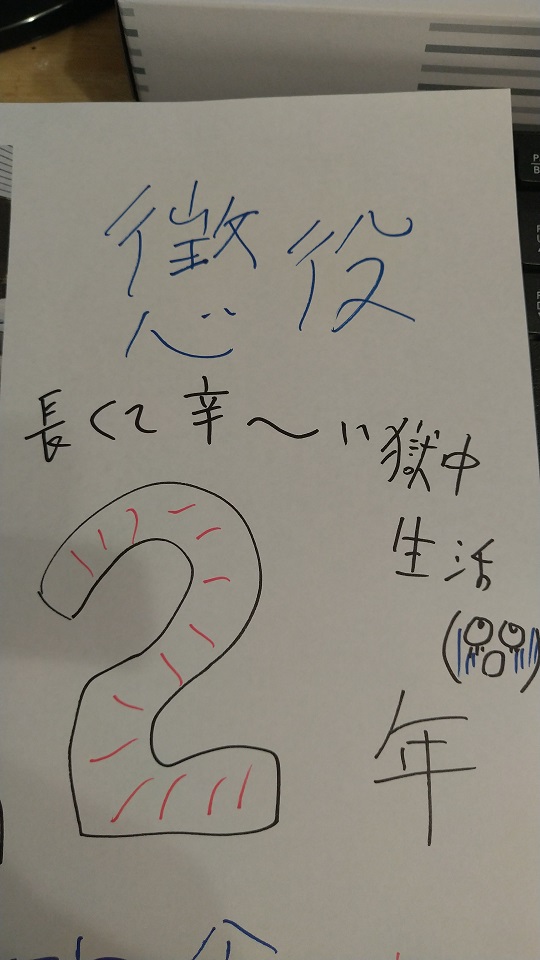 懲役
長くて辛〜い獄中
生活
2年